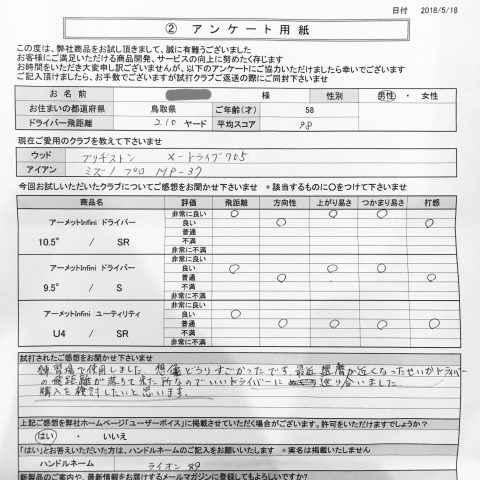 日付　2018/5/18
② アンケート用紙
この度は、弊社商品をお試し頂きまして、誠に有難うございました
お客様にご満足いただける商品開発、サービスの向上に努めたく存じます
お時間をいただき大変申し訳ございませんが、以下のアンケートにご協力いただけましたら幸いでございます
ご記入頂けましたら、お手数でございますが試打クラブご返送の際にご同封下さいませ
お名前 様 性別 男性 ・ 女性
お住まいの都道府県 鳥取県 ご年齢(才) 58
ドライバー飛距離 210 ヤード 平均スコア 98
現在ご愛用のクラブを教えて下さいませ
ウッド ブリヂストン X-ドライブ705
アイアン ミズノプロ MP-37
今回お試しいただいたクラブについてご感想をお聞かせ下さいませ ＊該当するものに○をつけて下さいませ
商品名 評価 飛距離 方向性 上がり易さ つかまり易さ 打感
アーメットInfini ドライバー
10.5° / SR
非常に良い ○ ○ ○
良い ○ ○
普通
不満
非常に不満
アーメットInfini ドライバー
9.5° / S
非常に良い
良い ○ ○ ○
普通 ○ ○
不満
非常に不満
アーメットInfini ユーティリティ
U4 / SR
非常に良い ○
良い ○ ○ ○ ○
普通
不満
非常に不満
試打されたご感想をお聞かせ下さいませ
練習場で使用しました。想像どうりすごかったです。最近還暦が近くなったせいかドライバー
の飛距離が落ちて来た所なのでいいドライバーに巡り合いました。
購入を検討したいと思います。
上記ご感想を弊社ホームページ「ユーザーボイス」に掲載させていただく場合がございます。許可をいただけますでしょうか？
はい ・ いいえ
「はい」とお答えいただいた方は、ハンドルネームのご記入をお願いいたします ＊実名は掲載いたしません
ハンドルネーム ライオン
新製品のご案内や、最新情報をお届けするメールマガジンに登録してもよろしいですか？